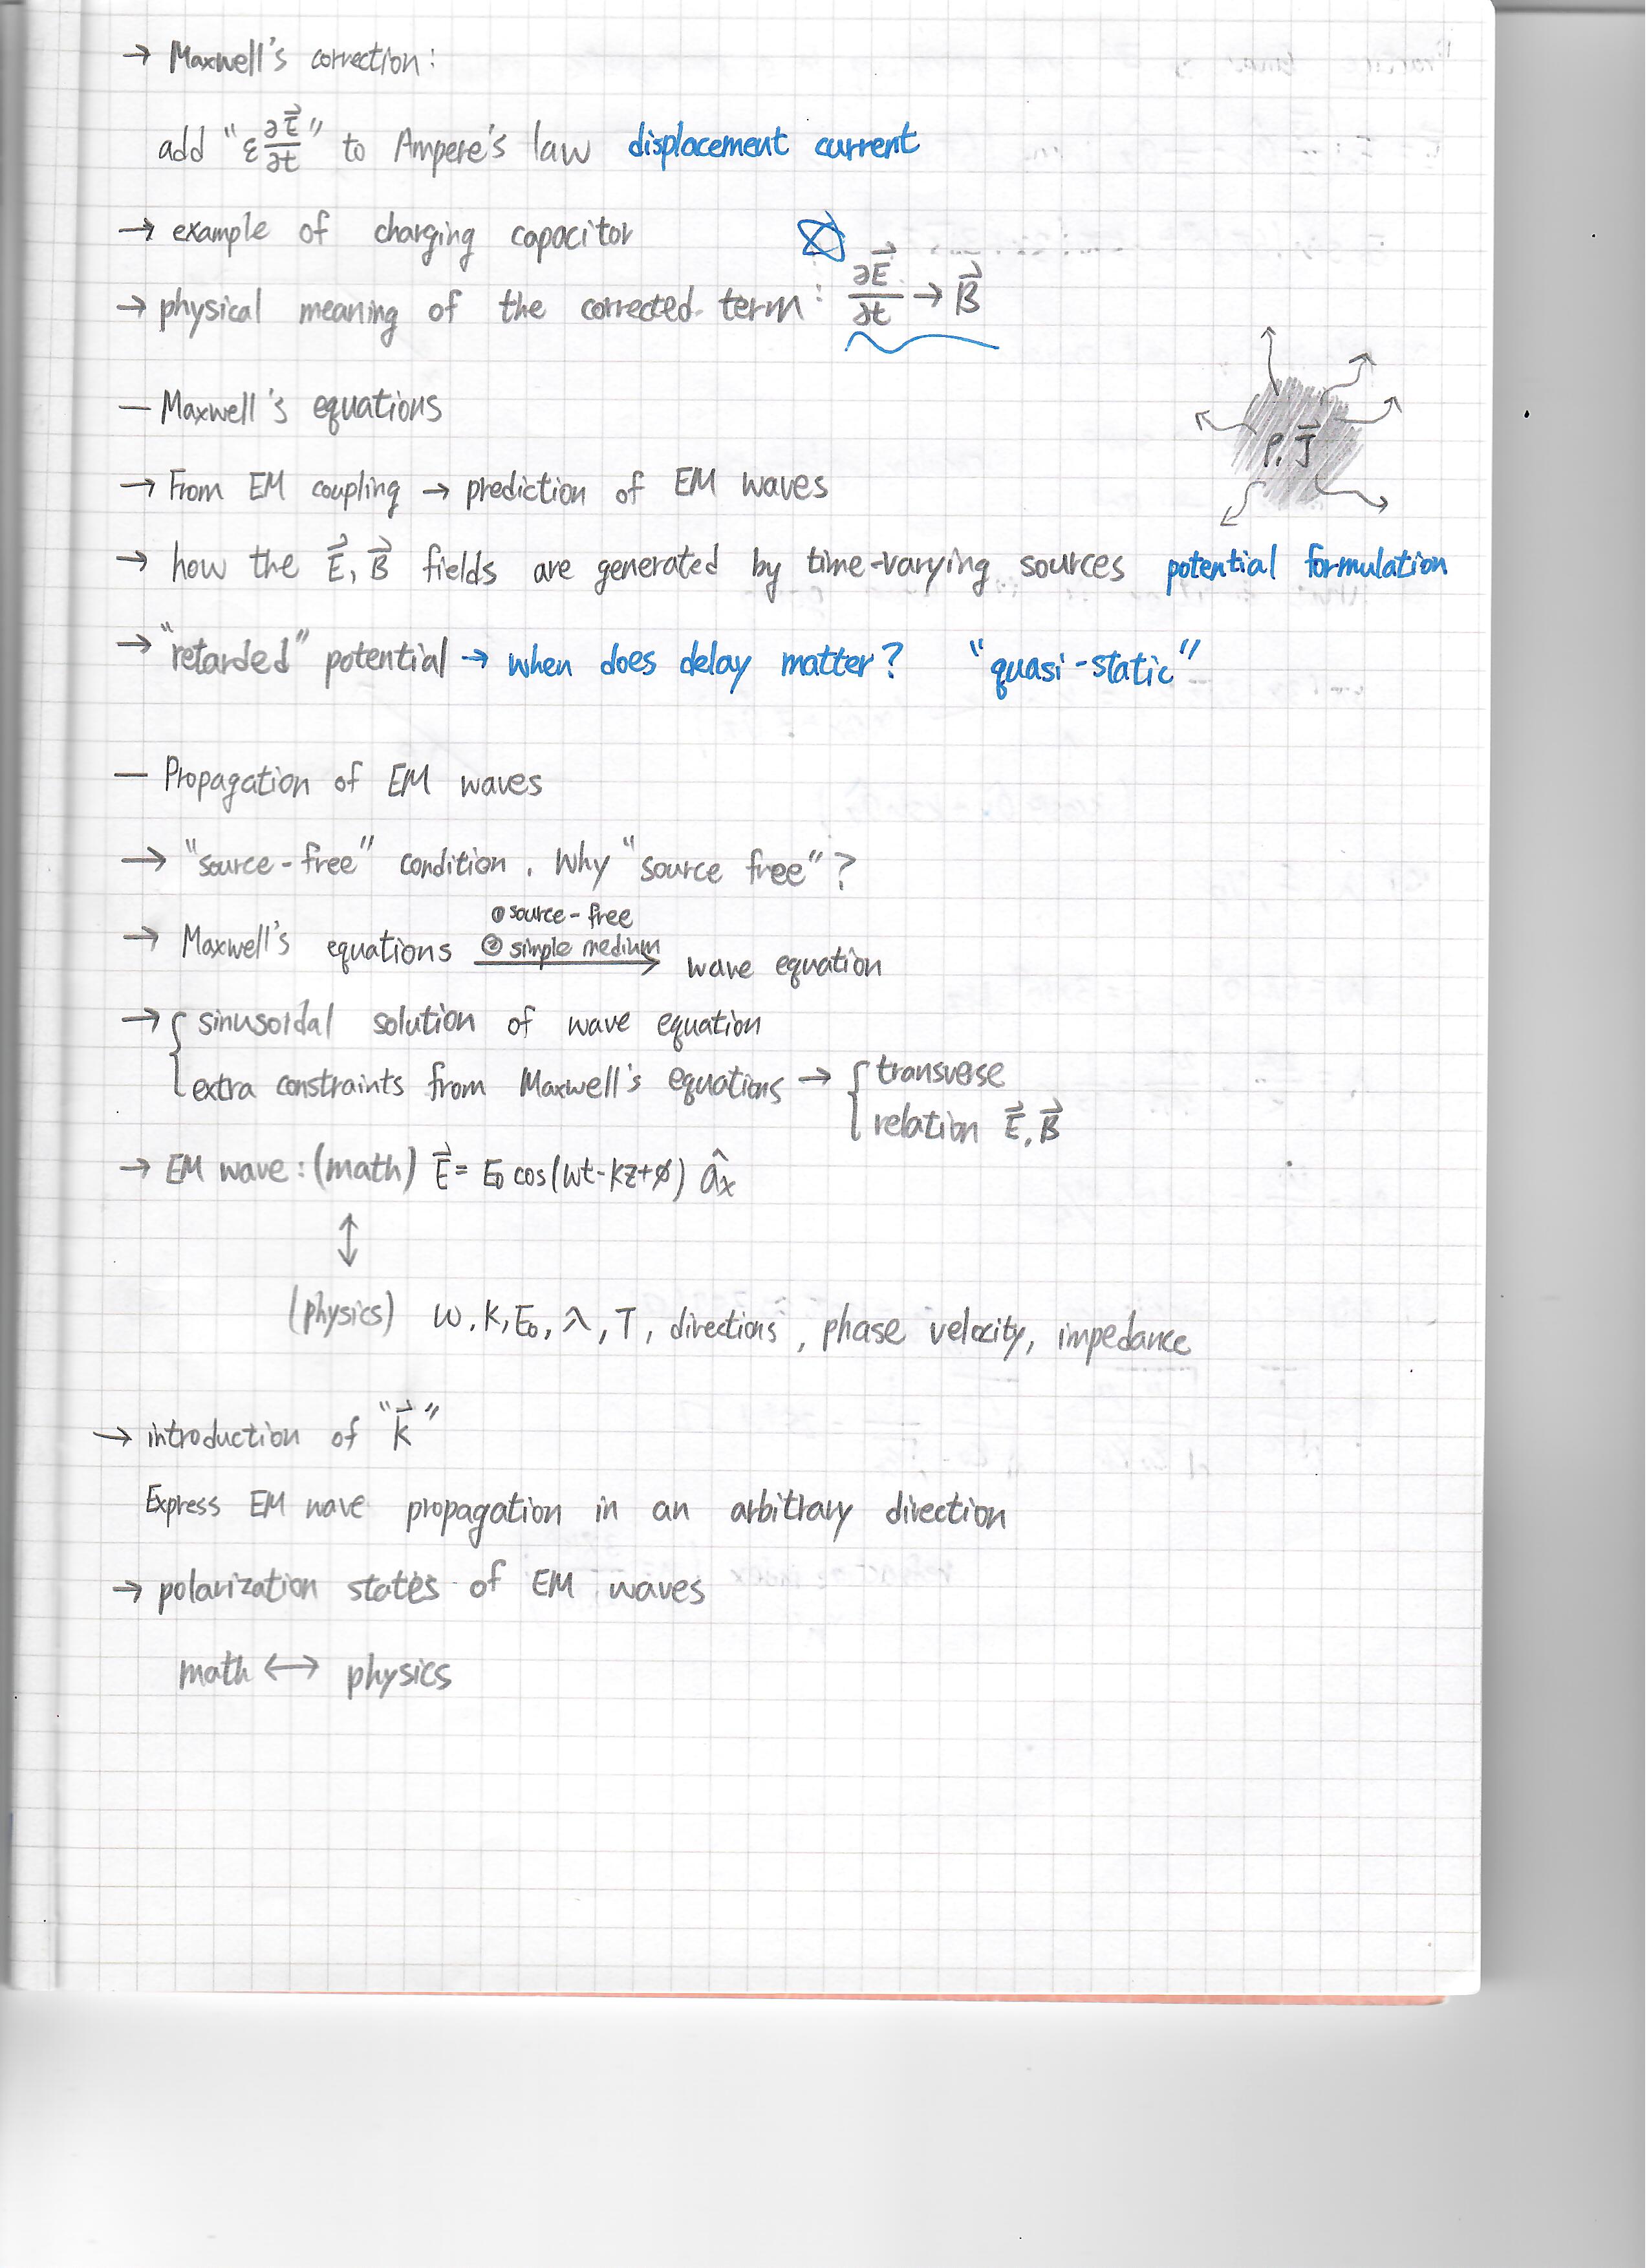 → Maxwell's correction:
add "ε ∂E⃗/∂t" to Ampere's law displacement current
→ example of charging capacitor
→ physical meaning of the corrected term: ∂E⃗/∂t → B⃗
— Maxwell's equations
ρ, J⃗
→ From EM coupling → prediction of EM waves
→ how the E⃗, B⃗ fields are generated by time-varying sources potential formulation
→ "retarded" potential → when does delay matter? "quasi-static"
— Propagation of EM waves
→ "source-free" condition. Why "source free"?
① source-free
→ Maxwell's equations ② simple medium → wave equation
→ { sinusoidal solution of wave equation
extra constraints from Maxwell's equations → { transverse
relation E⃗, B⃗
→ EM wave: (math) E⃗ = E₀ cos(ωt-kz+φ) âₓ
↕
(physics) ω, k, E₀, λ, T, directions, phase velocity, impedance
→ introduction of "k⃗"
Express EM wave propagation in an arbitrary direction
→ polarization states of EM waves
math ↔ physics